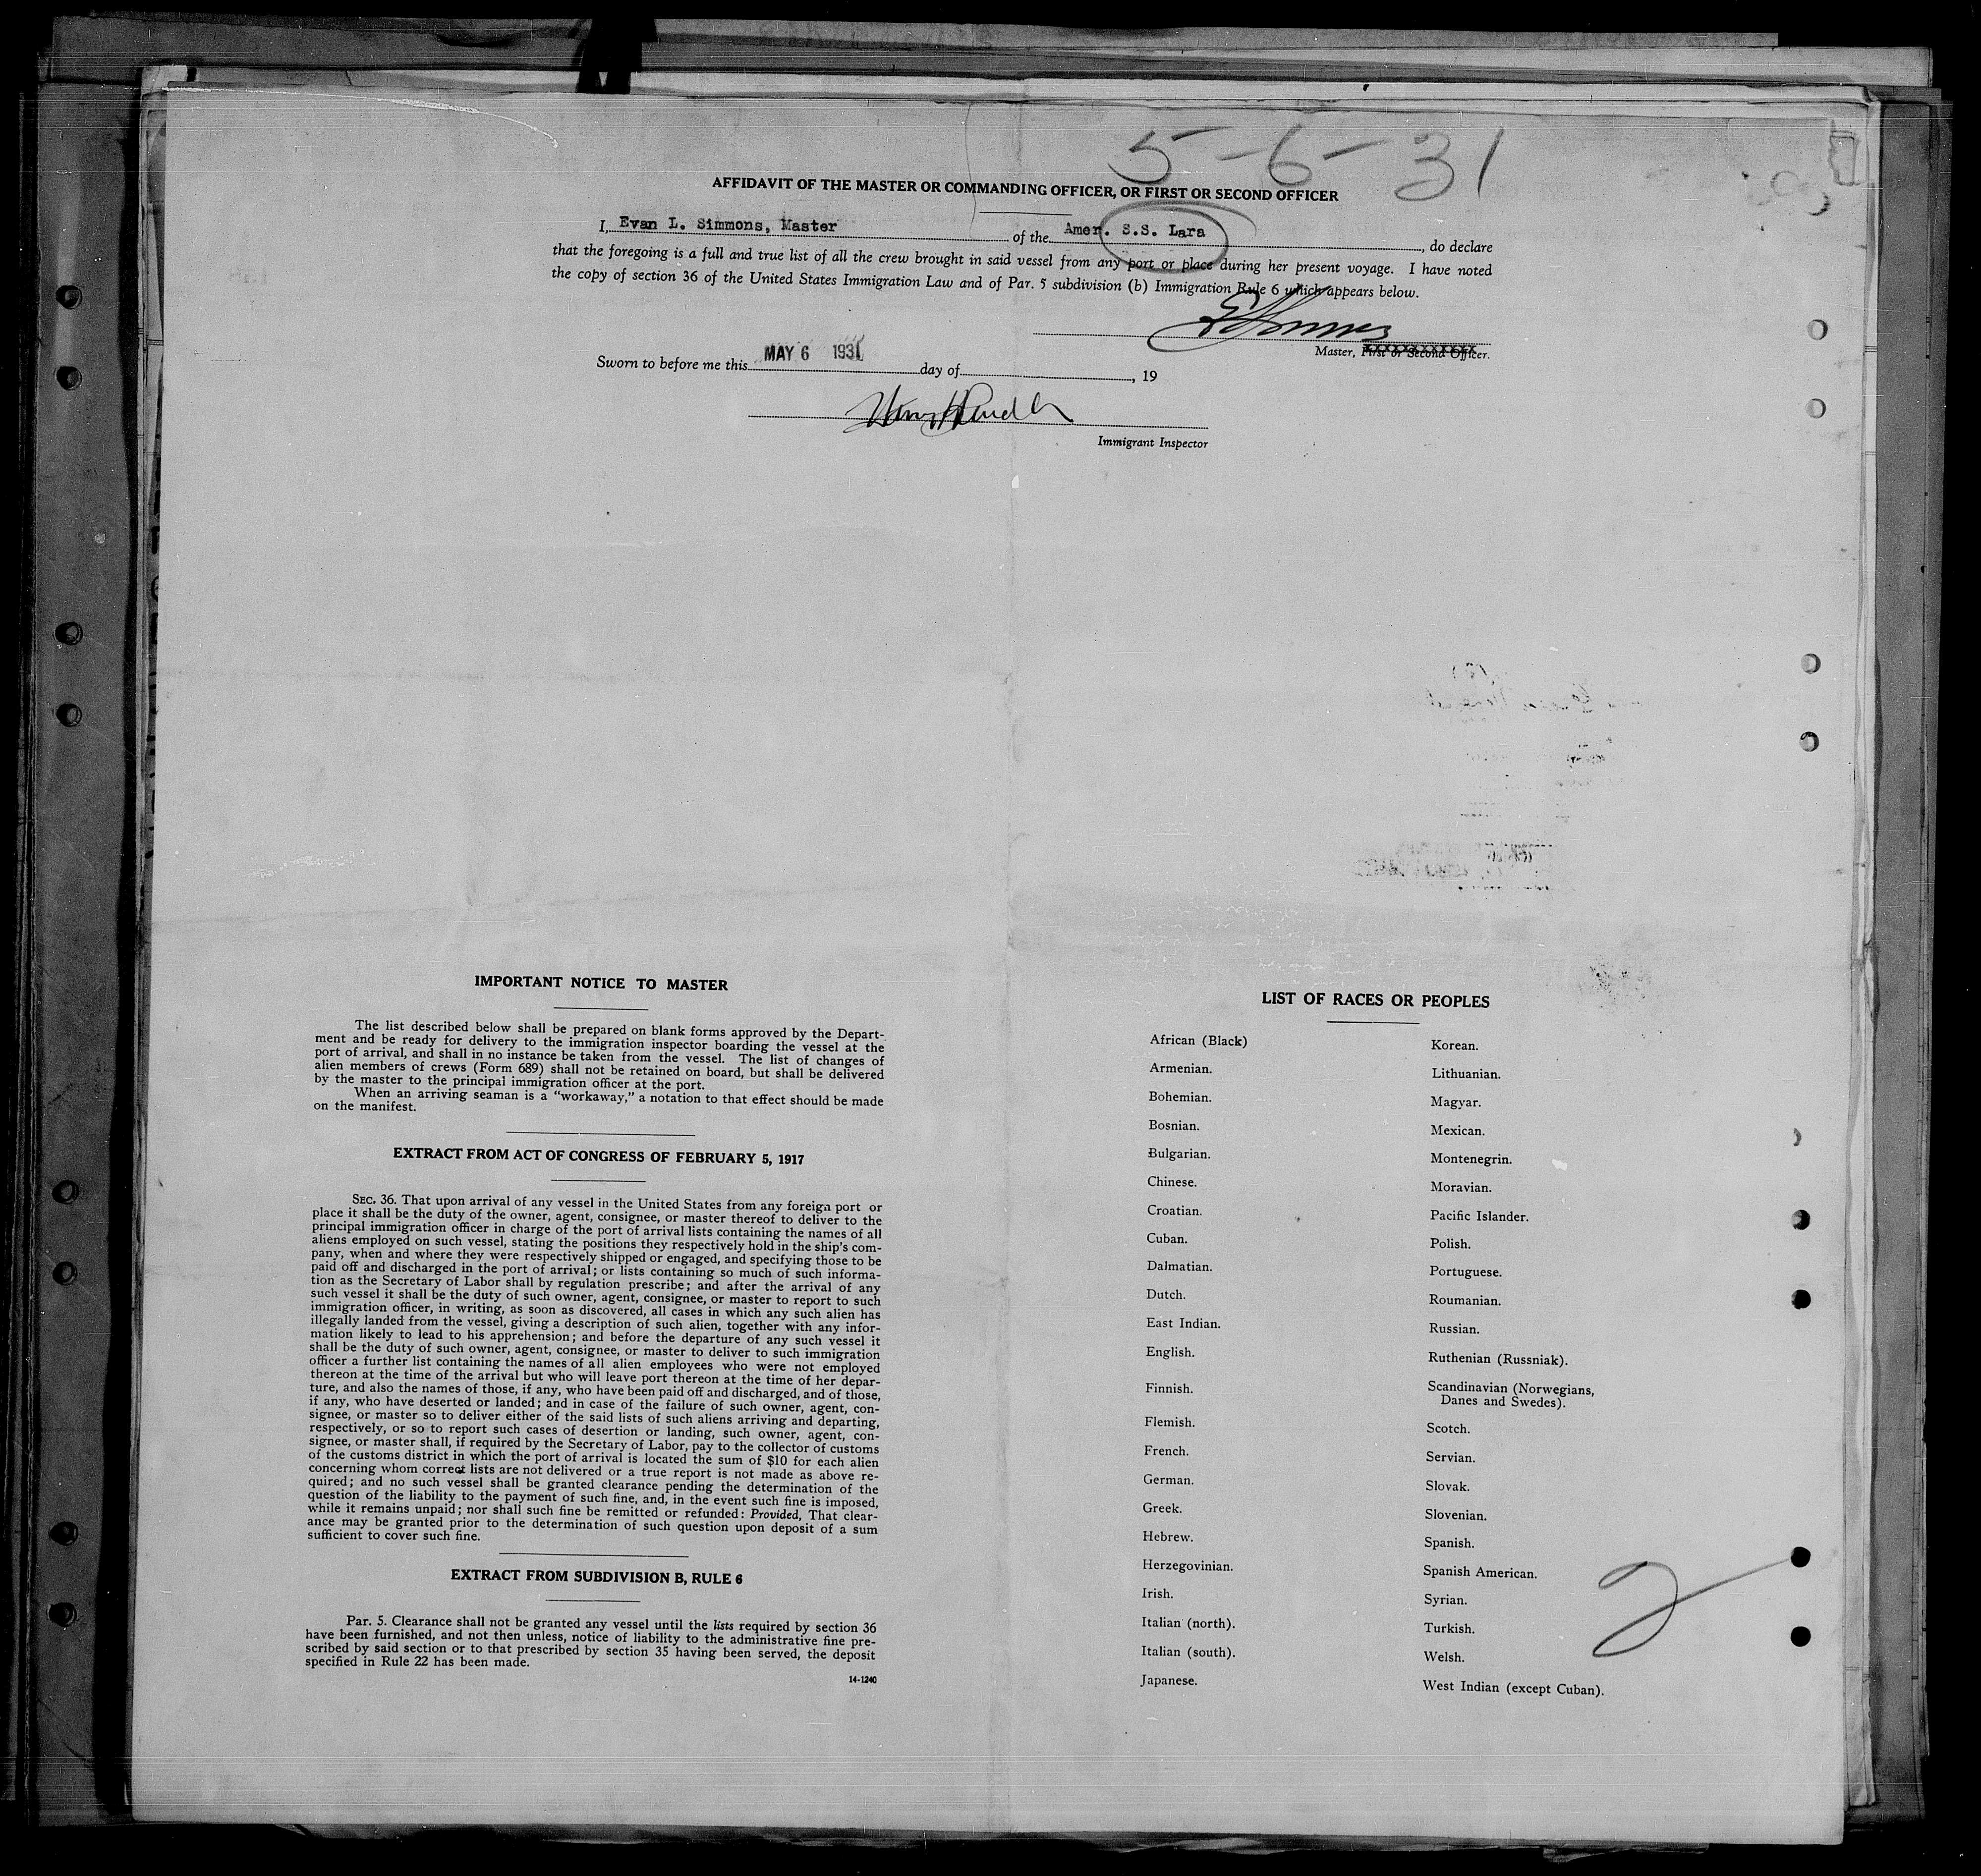 5-6-31
AFFIDAVIT OF THE MASTER OR COMMANDING OFFICER, OR FIRST OR SECOND OFFICER
I, Evan L. Simmons, Master of the Amer. S.S. Lara, do declare
that the foregoing is a full and true list of all the crew brought in said vessel from any port or place during her present voyage. I have noted
the copy of section 36 of the United States Immigration Law and of Par. 5 subdivision (b) Immigration Rule 6 which appears below.
Master, First or Second Officer.
Sworn to before me this MAY 6 1931 day of , 19
Immigrant Inspector
IMPORTANT NOTICE TO MASTER
The list described below shall be prepared on blank forms approved by the Depart-
ment and be ready for delivery to the immigration inspector boarding the vessel at the
port of arrival, and shall in no instance be taken from the vessel. The list of changes of
alien members of crews (Form 689) shall not be retained on board, but shall be delivered
by the master to the principal immigration officer at the port.
When an arriving seaman is a "workaway," a notation to that effect should be made
on the manifest.
EXTRACT FROM ACT OF CONGRESS OF FEBRUARY 5, 1917
SEC. 36. That upon arrival of any vessel in the United States from any foreign port or
place it shall be the duty of the owner, agent, consignee, or master thereof to deliver to the
principal immigration officer in charge of the port of arrival lists containing the names of all
aliens employed on such vessel, stating the positions they respectively hold in the ship's com-
pany, when and where they were respectively shipped or engaged, and specifying those to be
paid off and discharged in the port of arrival; or lists containing so much of such informa-
tion as the Secretary of Labor shall by regulation prescribe; and after the arrival of any
such vessel it shall be the duty of such owner, agent, consignee, or master to report to such
immigration officer, in writing, as soon as discovered, all cases in which any such alien has
illegally landed from the vessel, giving a description of such alien, together with any infor-
mation likely to lead to his apprehension; and before the departure of any such vessel it
shall be the duty of such owner, agent, consignee, or master to deliver to such immigration
officer a further list containing the names of all alien employees who were not employed
thereon at the time of the arrival but who will leave port thereon at the time of her depar-
ture, and also the names of those, if any, who have been paid off and discharged, and of those,
if any, who have deserted or landed; and in case of the failure of such owner, agent, con-
signee, or master so to deliver either of the said lists of such aliens arriving and departing,
respectively, or so to report such cases of desertion or landing, such owner, agent, con-
signee, or master shall, if required by the Secretary of Labor, pay to the collector of customs
of the customs district in which the port of arrival is located the sum of $10 for each alien
concerning whom correct lists are not delivered or a true report is not made as above re-
quired; and no such vessel shall be granted clearance pending the determination of the
question of the liability to the payment of such fine, and, in the event such fine is imposed,
while it remains unpaid; nor shall such fine be remitted or refunded: Provided, That clear-
ance may be granted prior to the determination of such question upon deposit of a sum
sufficient to cover such fine.
EXTRACT FROM SUBDIVISION B, RULE 6
Par. 5. Clearance shall not be granted any vessel until the lists required by section 36
have been furnished, and not then unless, notice of liability to the administrative fine pre-
scribed by said section or to that prescribed by section 35 having been served, the deposit
specified in Rule 22 has been made.
14-1240
LIST OF RACES OR PEOPLES
African (Black)
Armenian.
Bohemian.
Bosnian.
Bulgarian.
Chinese.
Croatian.
Cuban.
Dalmatian.
Dutch.
East Indian.
English.
Finnish.
Flemish.
French.
German.
Greek.
Hebrew.
Herzegovinian.
Irish.
Italian (north).
Italian (south).
Japanese.
Korean.
Lithuanian.
Magyar.
Mexican.
Montenegrin.
Moravian.
Pacific Islander.
Polish.
Portuguese.
Roumanian.
Russian.
Ruthenian (Russniak).
Scandinavian (Norwegians,
Danes and Swedes).
Scotch.
Servian.
Slovak.
Slovenian.
Spanish.
Spanish American.
Syrian.
Turkish.
Welsh.
West Indian (except Cuban).
2